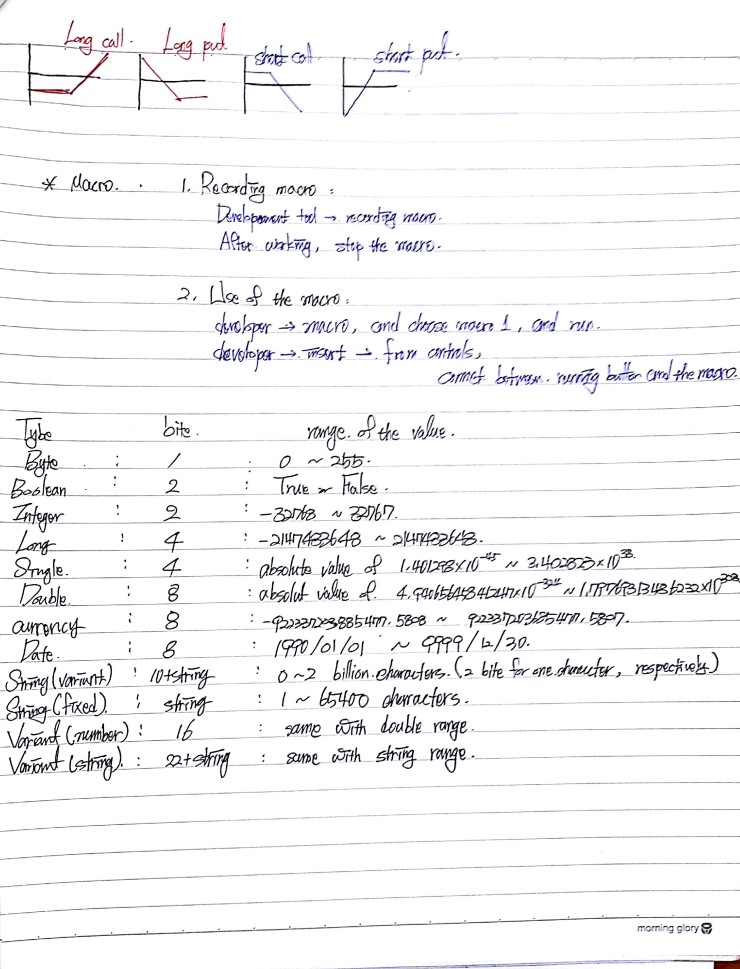 Long call. Long put. short call short put.
* Macro. 1. Recording macro :
Development tool → recording macro.
After working, stop the macro.
2. Use of the macro :
developer → macro, and choose macro 1, and run.
developer → insert → from controls,
connect between running button and the macro.
Type bite. range of the value.
Byte : 1 : 0 ~ 255.
Boolean : 2 : True or False.
Integer : 2 : -32768 ~ 32767.
Long : 4 : -2147483648 ~ 2147483648.
Single. : 4 : absolute value of 1.401298×10⁻⁴⁵ ~ 3.402823×10³⁸.
Double. : 8 : absolut value of
currency : 8 :
Date. : 8 : 1990/01/01 ~ 9999/12/30.
String (variant) : 10+string : 0 ~ 2 billion characters. (2 bite for one character, respectively.)
String (fixed). : string : 1 ~ 65400 characters.
Variant (number) : 16 : same with double range.
Variant (string). : 22+string : same with string range.
morning glory